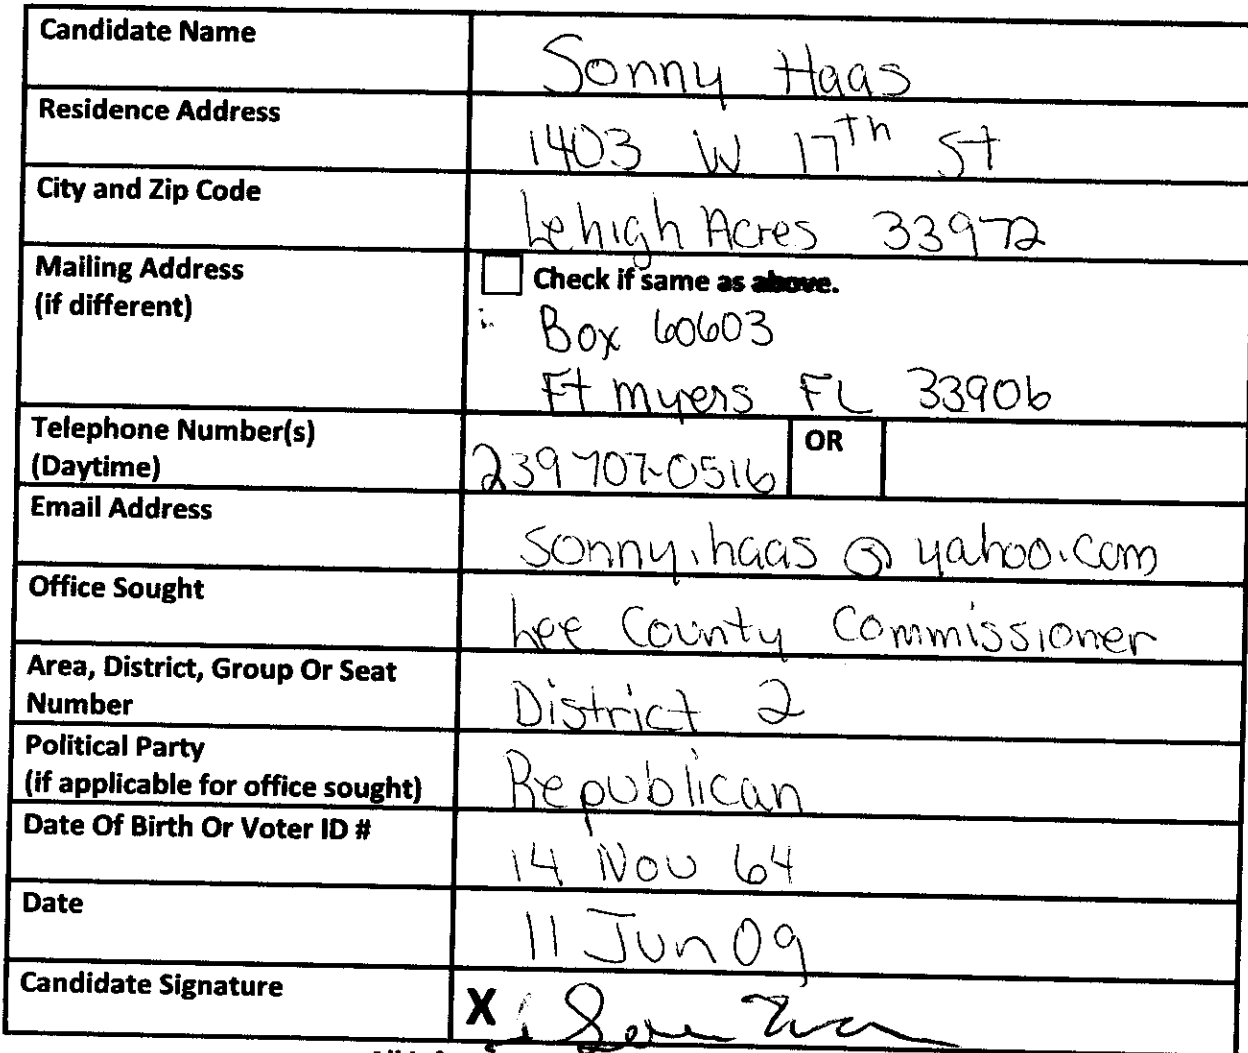 Candidate Name
Sonny Haas
Residence Address
1403 W 17th St
City and Zip Code
Lehigh Acres 33972
Mailing Address
(if different)
Check if same as above.
Box 60603
Ft Myers FL 33906
Telephone Number(s)
(Daytime)
239 707-0516
OR
Email Address
sonny.haas @ yahoo.com
Office Sought
Lee County Commissioner
Area, District, Group Or Seat
Number
District 2
Political Party
(if applicable for office sought)
Republican
Date Of Birth Or Voter ID #
14 Nov 64
Date
11 Jun 09
Candidate Signature
X